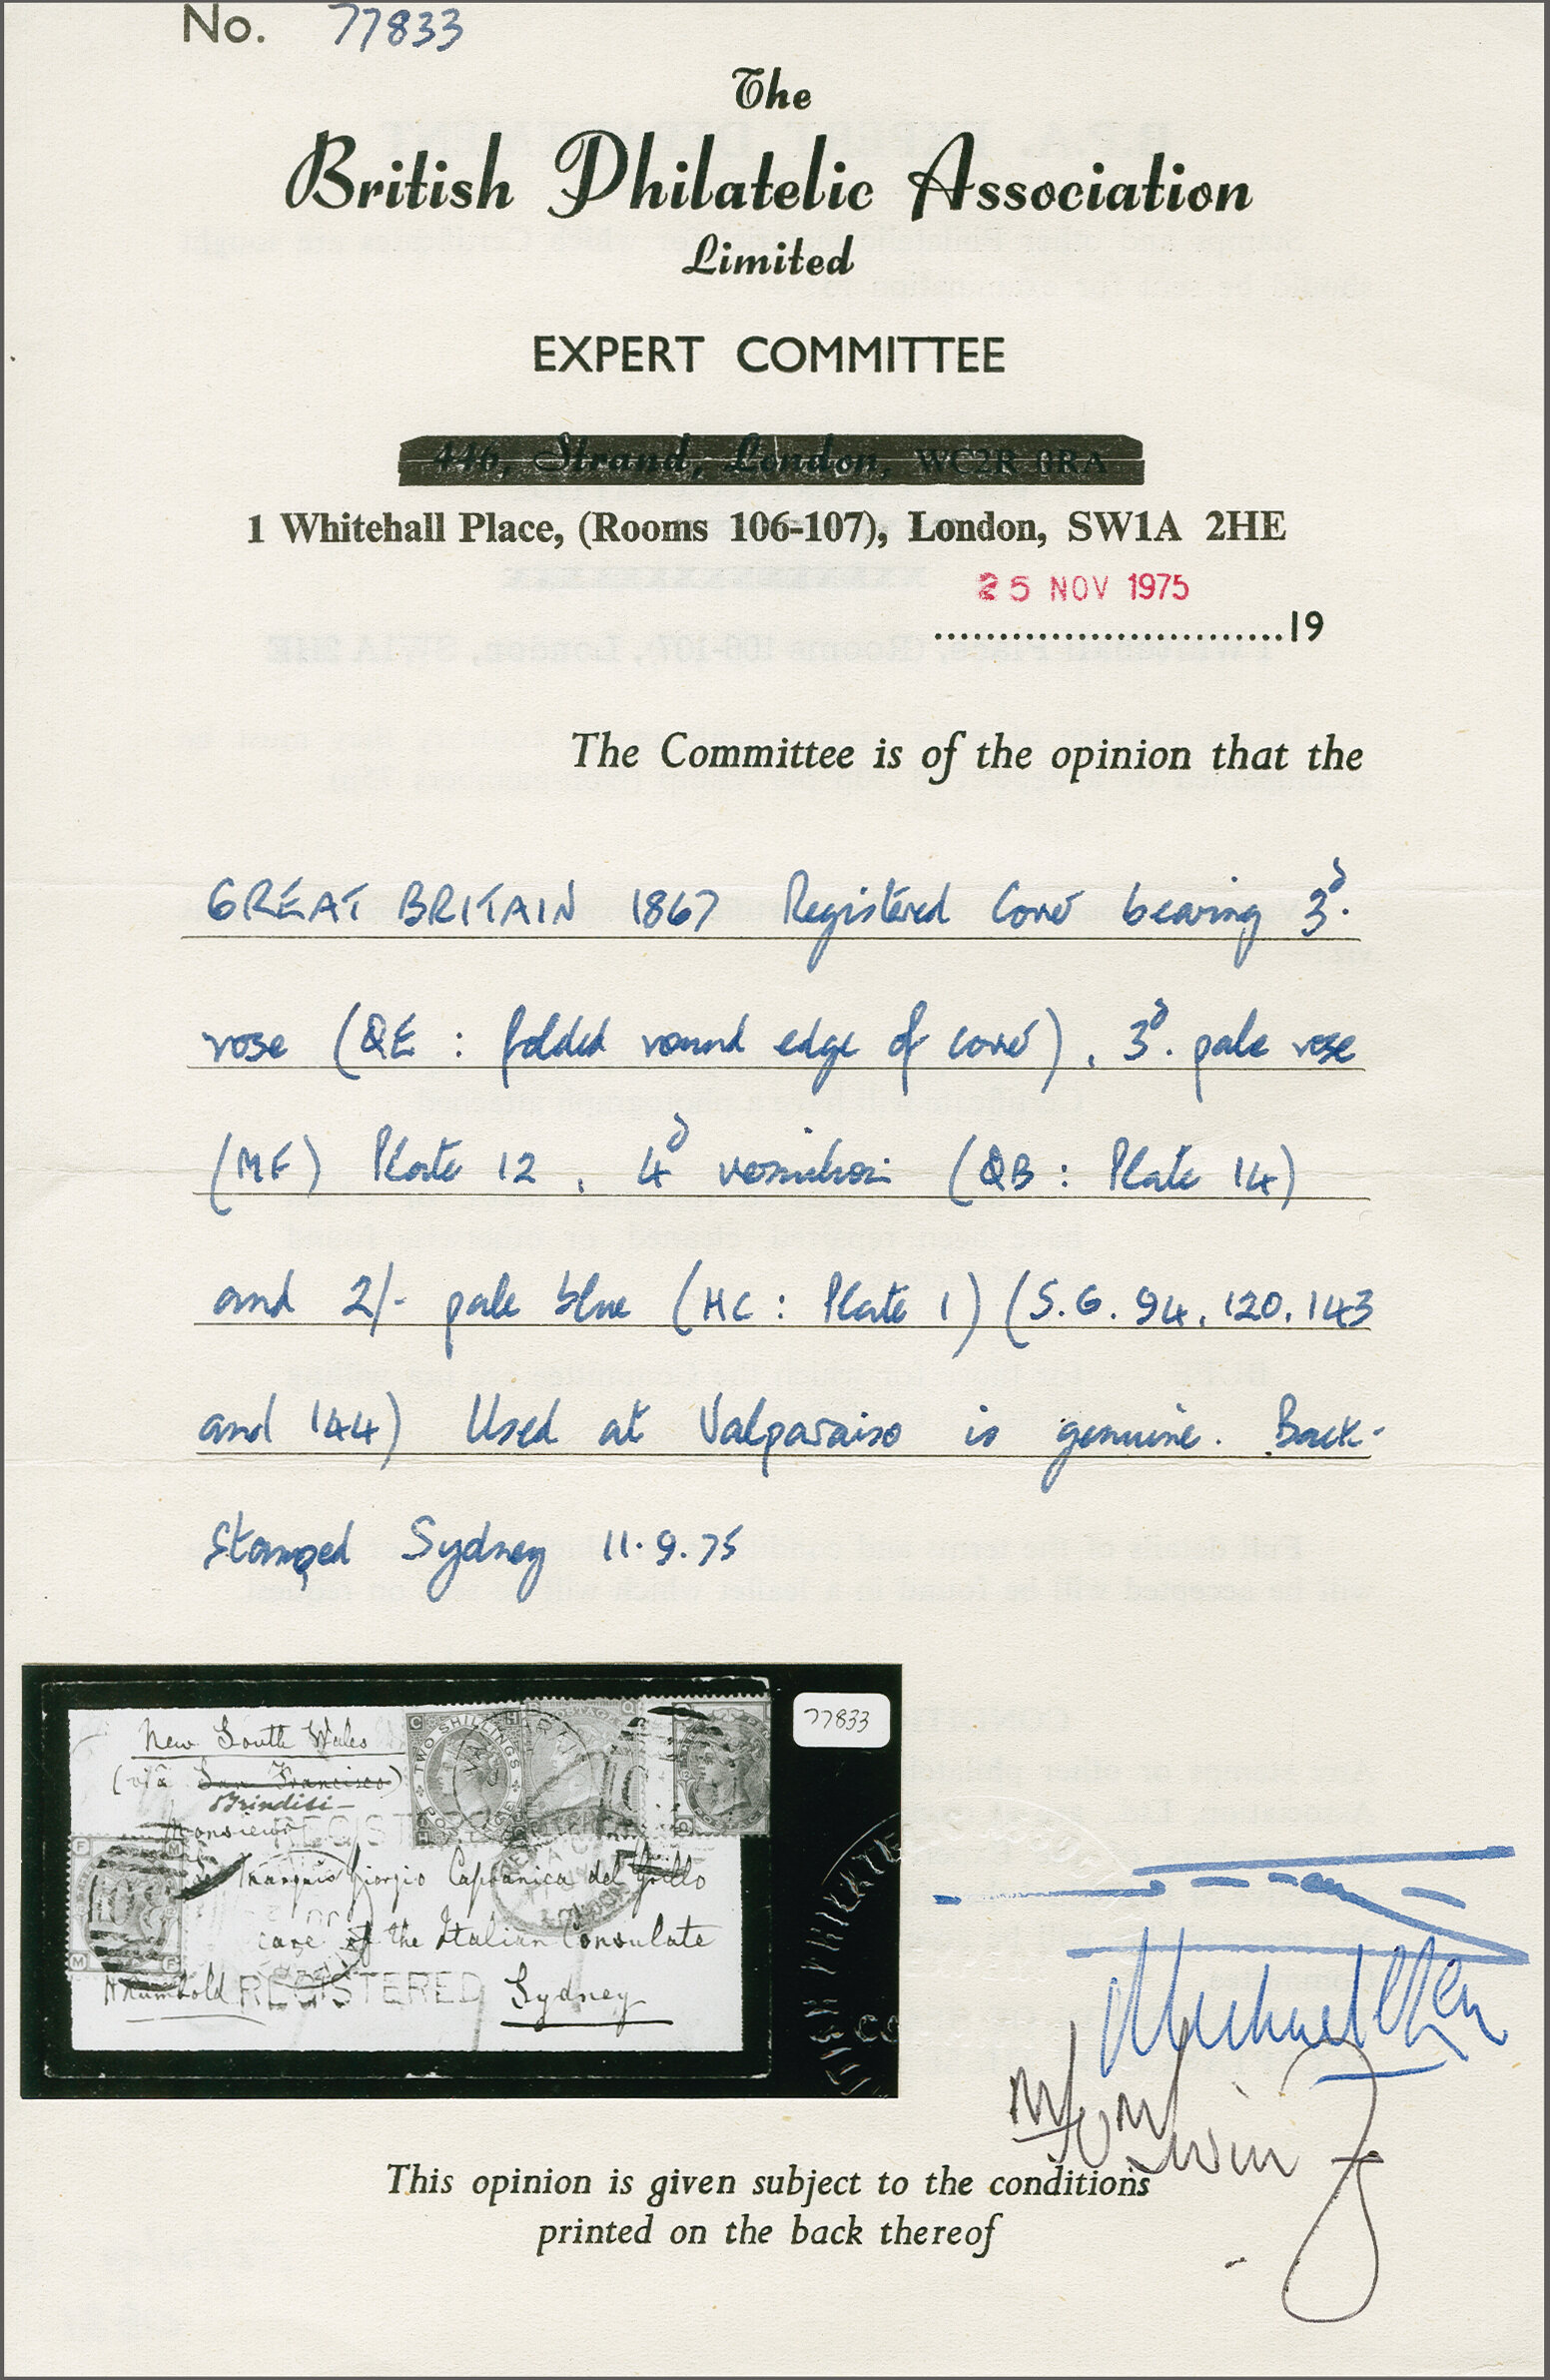 No. 77833
The
British Philatelic Association
Limited
EXPERT COMMITTEE
446, Strand, London, WC2R 0RA
1 Whitehall Place, (Rooms 106-107), London, SW1A 2HE
25 NOV 1975
............................19
The Committee is of the opinion that the
GREAT BRITAIN 1867 Registered Cover bearing 3d.
rose (QE : folded round edge of cover), 3d. pale rose
(MF) Plate 12, 4d vermilion (QB : Plate 14)
and 2/- pale blue (HC : Plate 1) (S.G. 94, 120, 143
and 144) Used at Valparaiso is genuine. Back-
stamped Sydney 11.9.75
77833
New South Wales
(via San Francisco)
Brindisi
Monsieur
Marquis Giorgio Capranica del Grillo
care of the Italian Consulate
REGISTERED Sydney
TWO SHILLINGS
This opinion is given subject to the conditions
printed on the back thereof